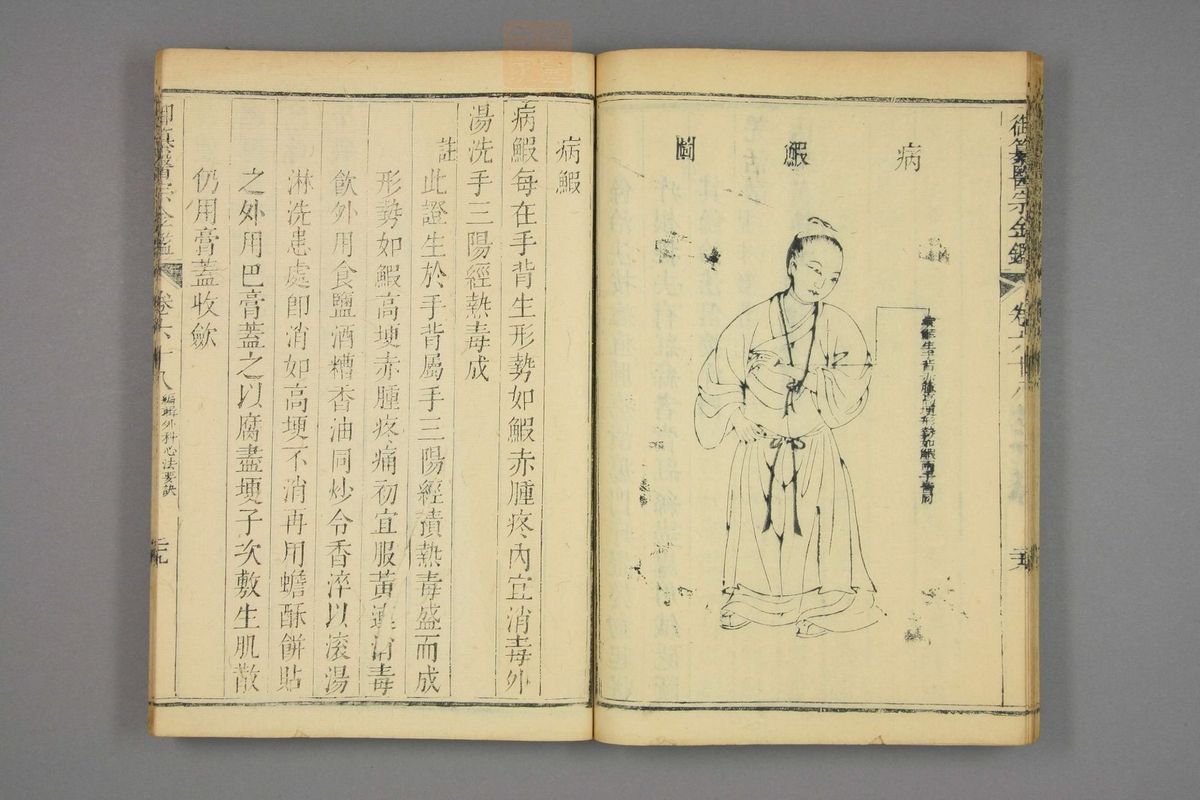 病鰕圖
御纂醫宗金鑑
卷六十八
病鰕
病鰕每在手背生形勢如鰕赤腫疼內宜消毒外
湯洗手三陽經熱毒成
註
此證生於手背屬手三陽經積熱毒盛而成
形勢如鰕高埂赤腫疼痛初宜服黃連消毒
飲外用食鹽酒糟香油同炒令香淬以滾湯
淋洗患處卽消如高埂不消再用蟾酥餅貼
之外用巴膏蓋之以腐盡埂子次敷生肌散
仍用膏蓋收斂
御纂醫宗金鑑
卷六十八
編輯外科心法要訣